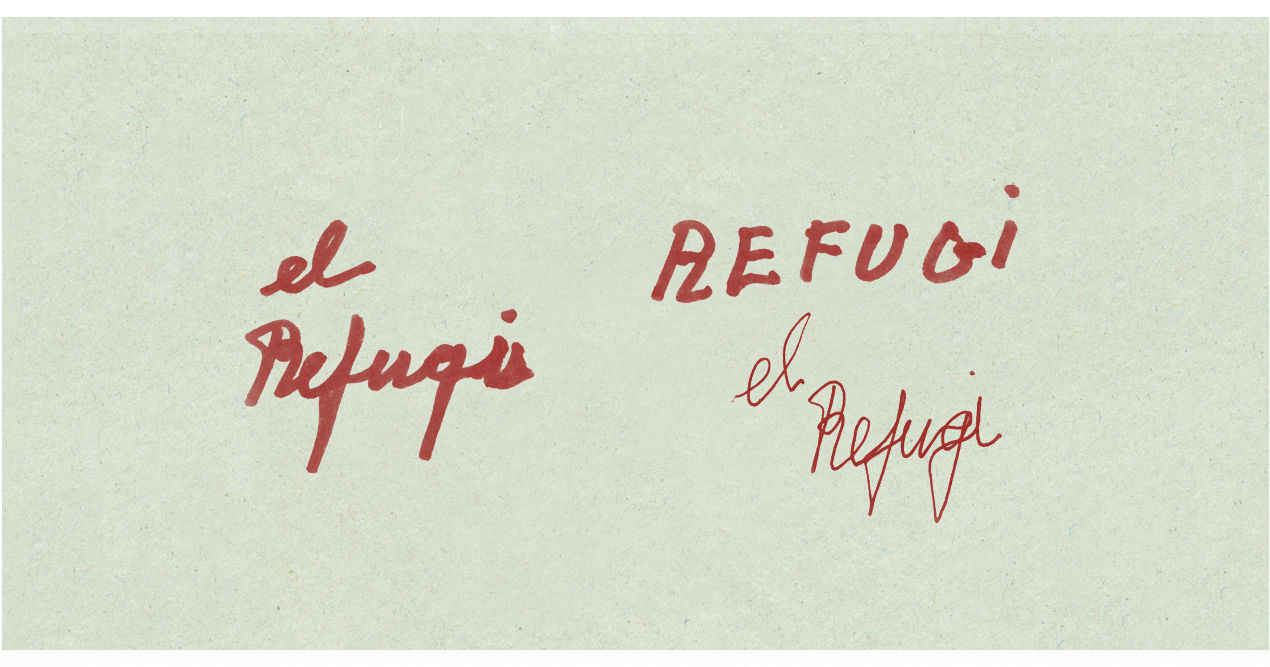 el
Refugi
REFUGi
el
Refugi